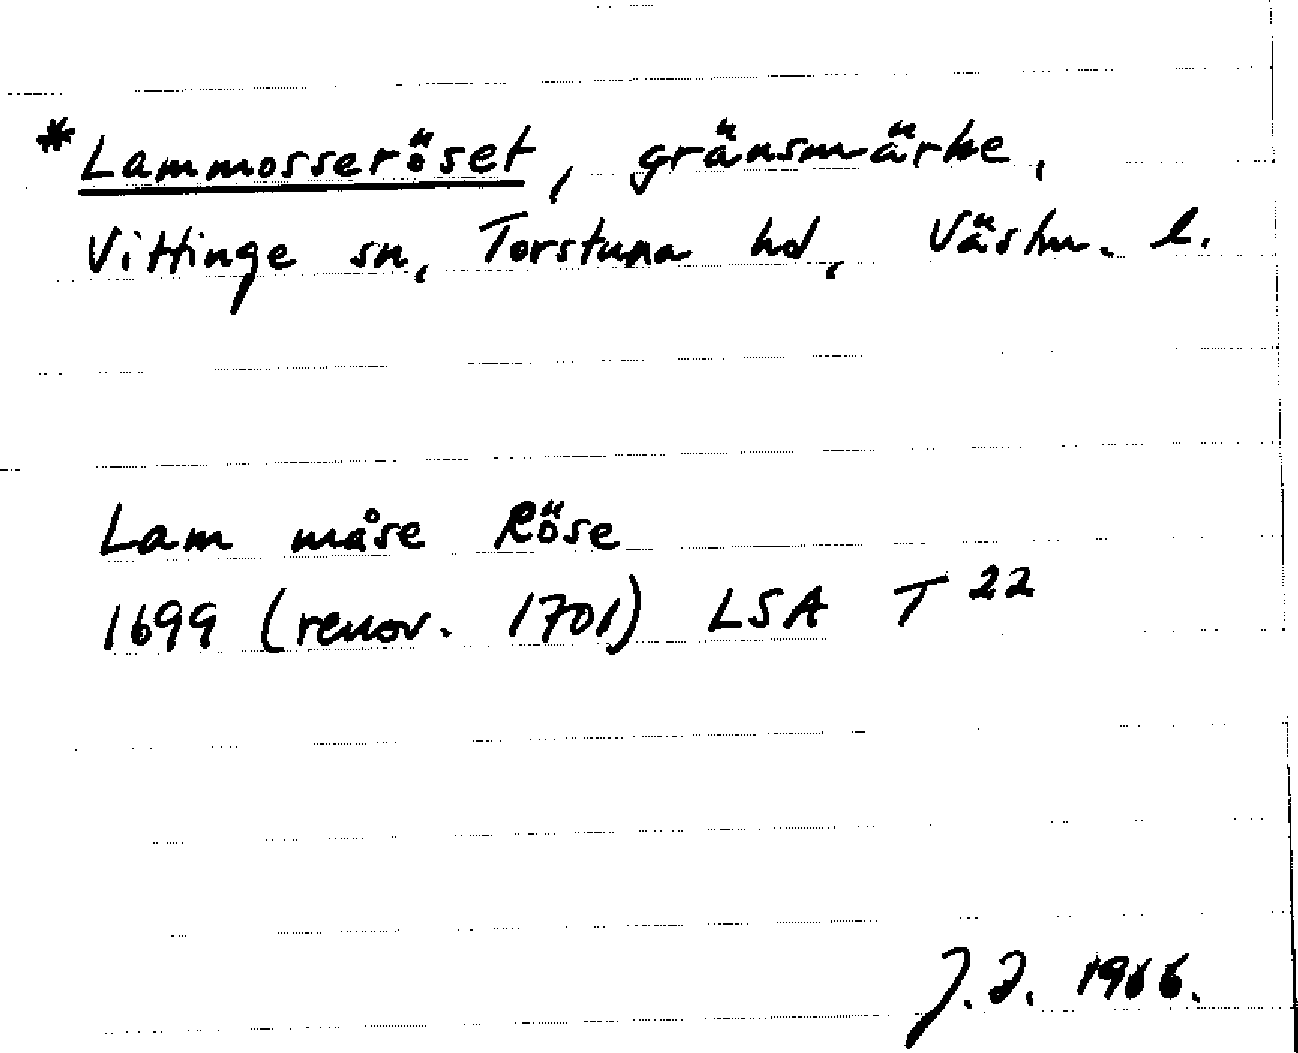 *Lammosseröset, gränsmärke,
Vittinge sn, Torstuna hd, Västm. l.
Lam måse Röse
1699 (renov. 1701) LSA T 22
J. J. 1966.